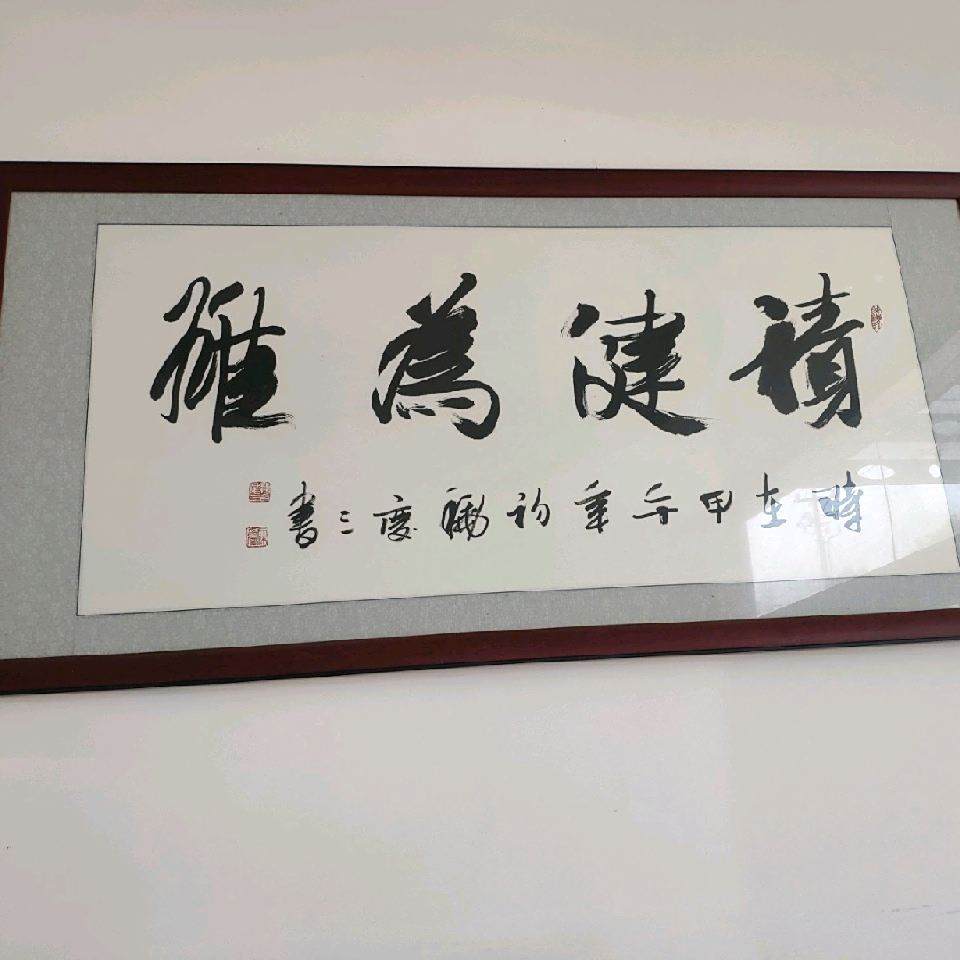 積健為雄
時在甲午年初秋慶三書